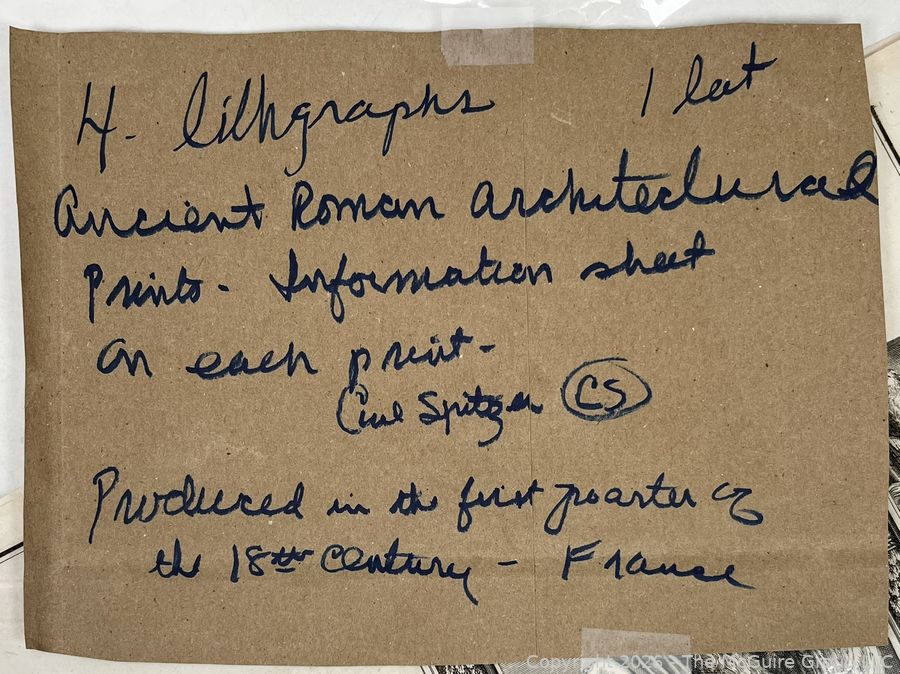 4. lithgraphs 1 lot
Ancient Roman Architectural
Prints. Information sheet
on each print-
Spitzer CS
Produced in the first quarter of
the 18th Century - France
Copyright 2026 - The McGuire Group LLC